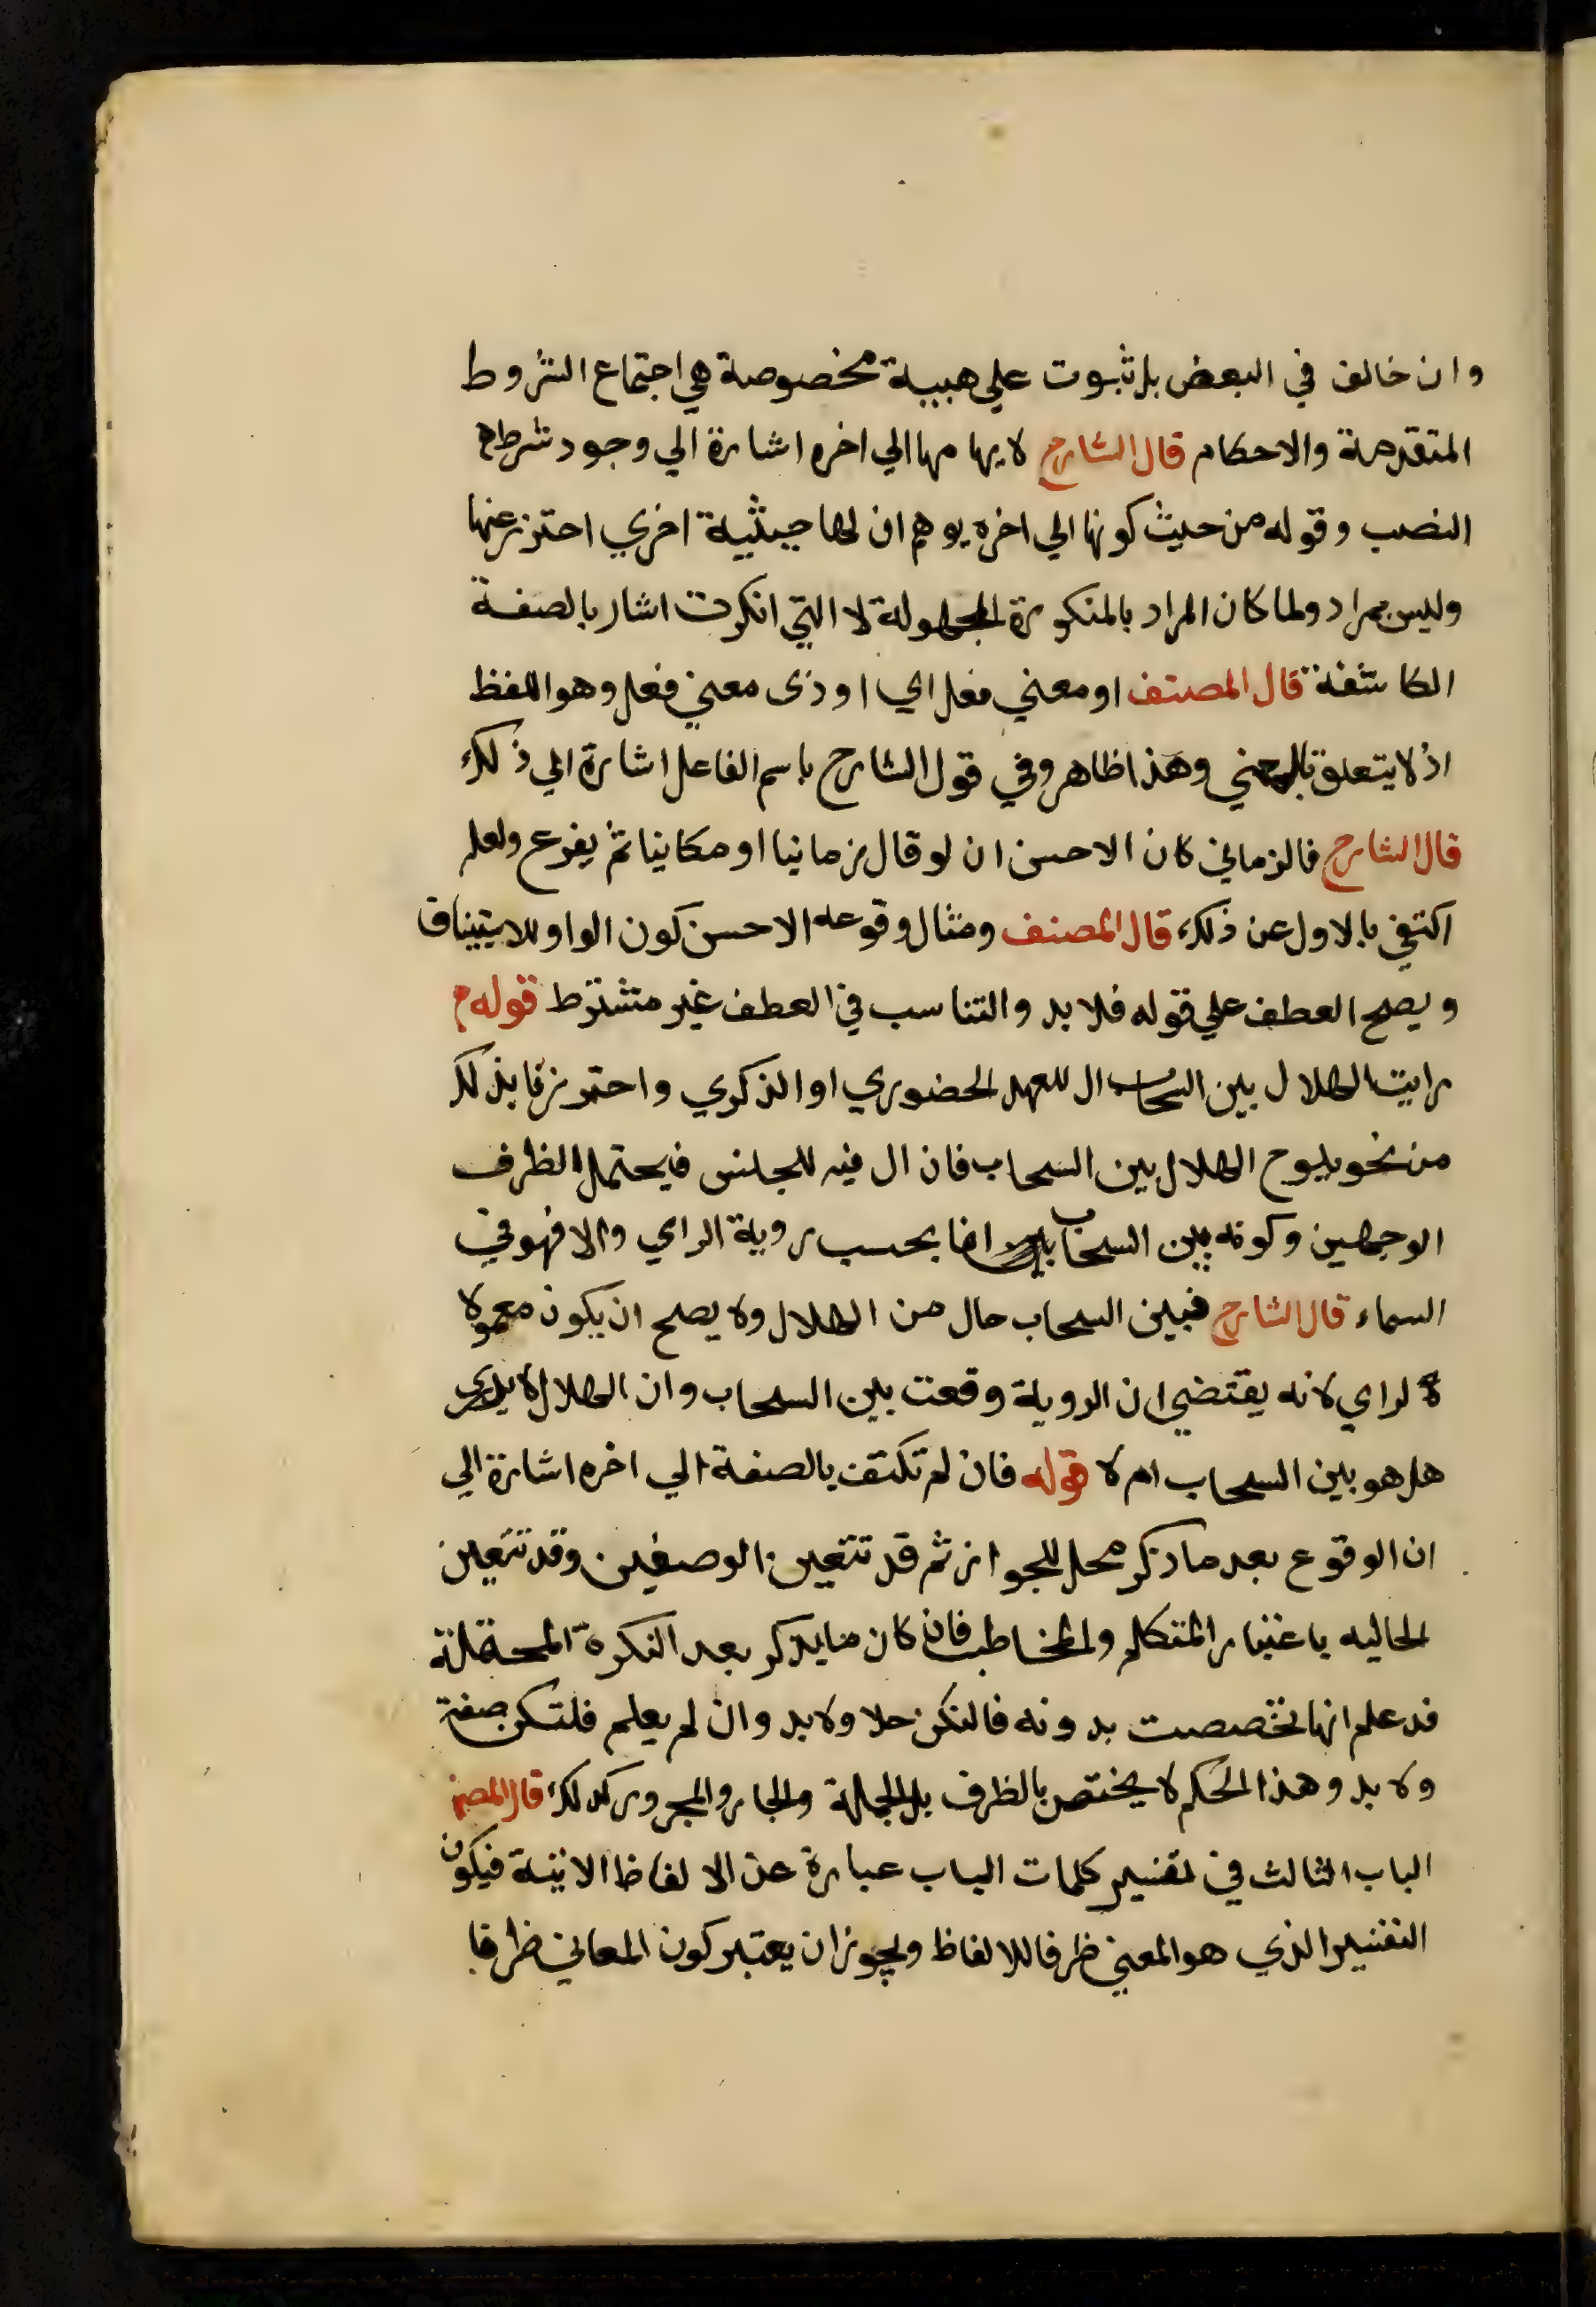 وان خالف في البعض بل ثبوت علي هيبية مخصوصة هي اجتماع الشروط
المتقدمة والاحكام قال الشارح لايها مها الي اخره اشارة الي وجود شرط
النصب وقوله من حيث كونها الي اخره يوهم ان لها حيثية اخري احترز عنها
وليس بمراد ولما كان المراد بالمنكورة المجهولة لا التي انكرت اشار بالصفة
الكاشفة قال المصنف او معني فعل اي او ذى معني فعل وهو اللفظ
اذ لا يتعلق بالمعني وهذا ظاهر وفي قول الشارح باسم الفاعل اشارة الي ذلك
قال الشارح فالزماني كان الاحسن ان لو قال زمانيا او مكانيا ثم يفرع ولعله
اكتفي بالاول عن ذلك قال المصنف ومثال وقوعه الاحسن كون الواو للاستيناف
ويصح العطف علي قوله فلا بد والتناسب في العطف غير مشترط قوله
رايت الهلال بين السحاب ال للعهد الحضوري او الذكري واحترزنا بذلك
من نحو يلوح الهلال بين السحاب فان ال فيه للجنس فيحتمل الظرف
الوجهين وكونه بين السحاب انما بحسب روية الراي والا فهو في
السماء قال الشارح فبين السحاب حال من الهلال ولا يصح ان يكون معمولا
لراي لانه يقتضي ان الروية وقعت بين السحاب وان الهلال لا يدرى
هل هو بين السحاب ام لا قوله فان لم تكتف بالصفة الي اخره اشارة الي
ان الوقوع بعد ما ذكر محل للجواز ثم قد تتعين الوصفين وقد تتعين
الحاليه باعتبار المتكلم والمخاطب فان كان ما يذكر بعد النكرة المحتملة
قد علم انها تخصصت بدونه فالنكن حلا ولابد وان لم يعلم فلتكن صفة
ولابد وهذا الحكم لا يختص بالظرف بل الجملة والجار والمجرور كذلك قال المصنف
الباب الثالث في تفسير كلمات الباب عبارة عن الالفاظ الاتية فيكون
التفسير الذي هو المعني ظرفا للالفاظ ويجوز ان يعتبر كون المعاني ظرفا